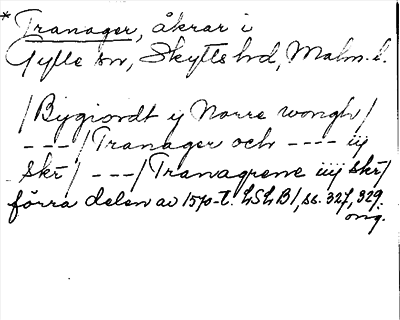 * Tranager, åkrar i
Gylle sn, Skytts hd, Malm. l.
/Bygiordt y Norre wongh/
---/Tranager och ---- iij
skr/ ---/Tranagrene iiij skr/
förra delen av 1570-t. LSLB1, ss. 327, 329.
orig.